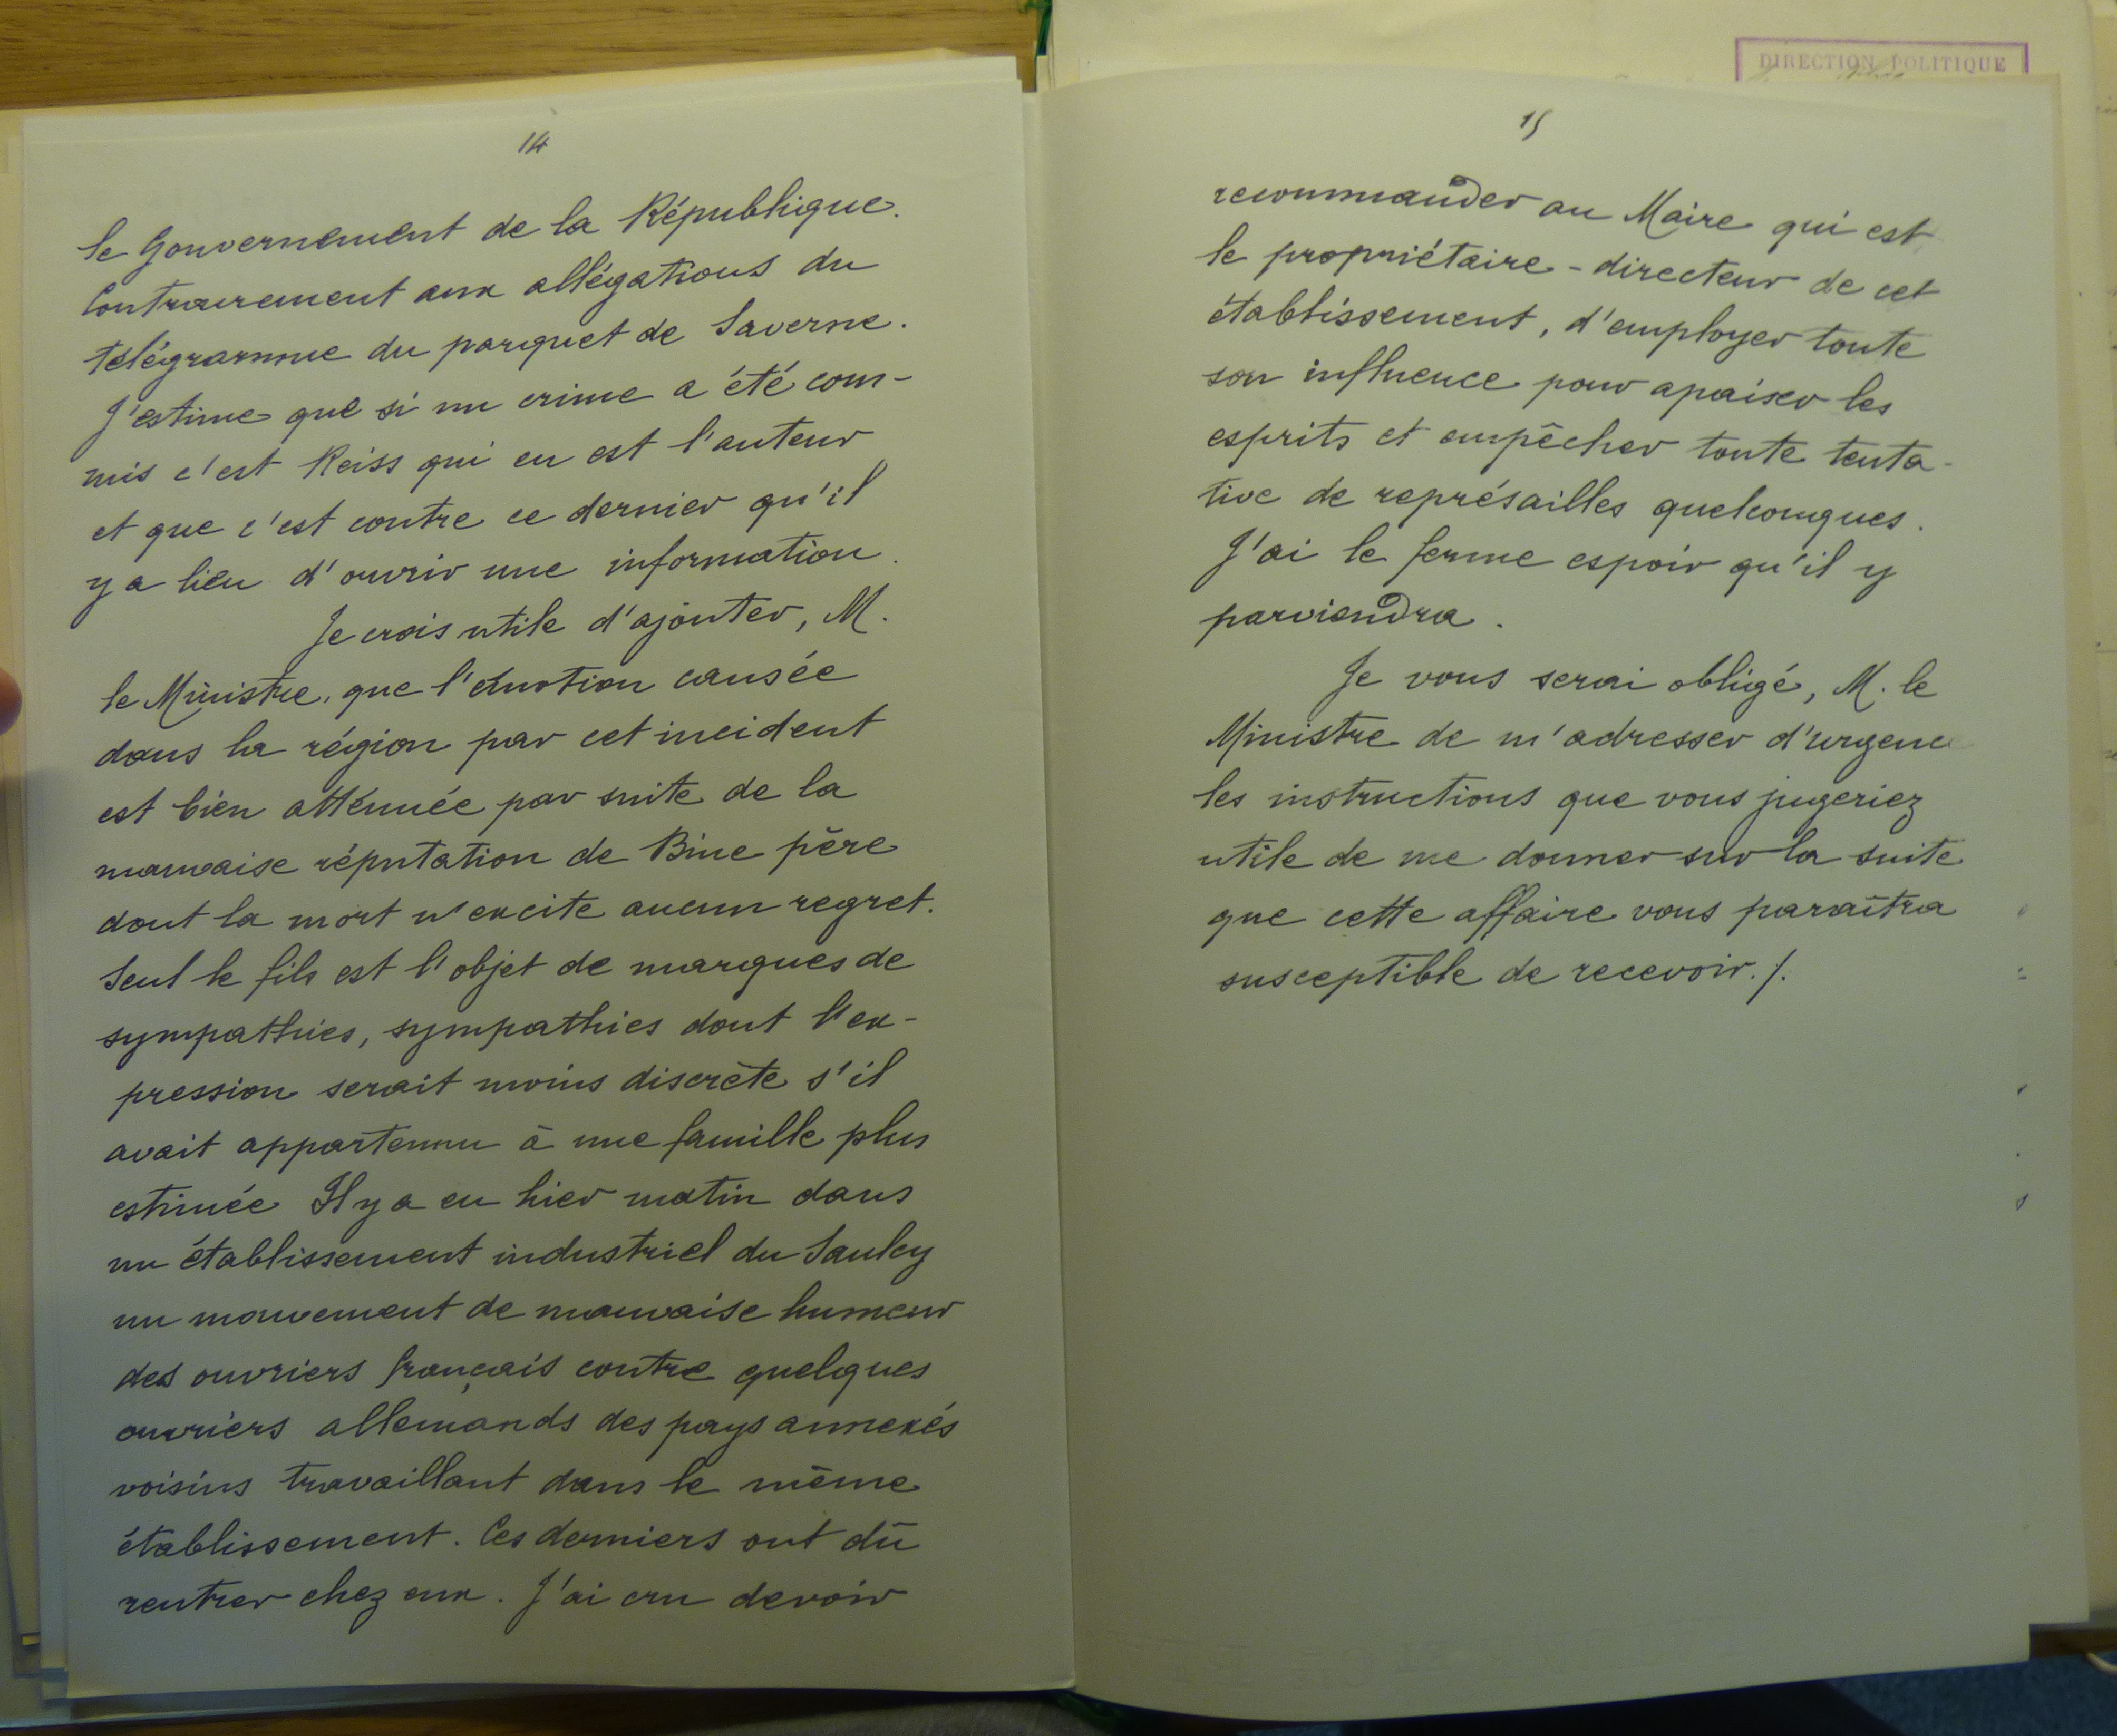 14
le Gouvernement de la République.
Contrairement aux allégations du
télégramme du parquet de Saverne.
J'estime que si un crime a été com-
mis c'est Reiss qui en est l'auteur
et que c'est contre ce dernier qu'il
y a lieu d'ouvrir une information.
Je crois utile d'ajouter, M.
le Ministre, que l'émotion causée
dans la région par cet incident
est bien atténuée par suite de la
mauvaise réputation de Bine père
dont la mort n'excite aucun regret.
Seul le fils est l'objet de marques de
sympathies, sympathies dont l'ex-
pression serait moins discrète s'il
avait appartenu à une famille plus
estimée Il y a eu hier matin dans
un établissement industriel du Saulcy
un mouvement de mauvaise humeur
des ouvriers français contre quelques
ouvriers allemands des pays annexés
voisins travaillant dans le même
établissement. Ces derniers ont dû
rentrer chez eux. J'ai cru devoir
DIRECTION POLITIQUE
15
recommander au Maire qui est
le propriétaire-directeur de cet
établissement, d'employer toute
son influence pour apaiser les
esprits et empêcher toute tenta-
tive de représailles quelconques.
J'ai le ferme espoir qu'il y
parviendra.
Je vous serai obligé, M. le
Ministre de m'adresser d'urgence
les instructions que vous jugeriez
utile de me donner sur la suite
que cette affaire vous paraîtra
susceptible de recevoir./.